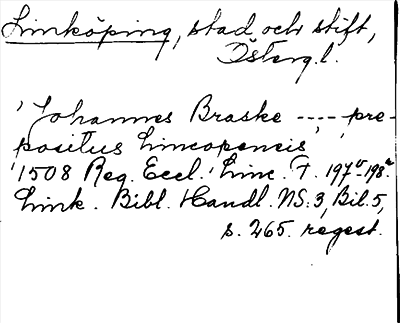 Linköping, stad och stift,
Österg.l.
'Johannes Braske ---- pre-
positus Lincopensis'
'1508 Reg. Eccl. Linc. F. 197v-198r
Link. Bibl. Handl. NS:3, Bil.5,
s. 265. regest.